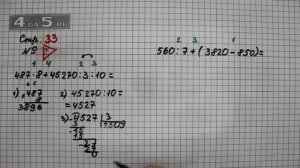 4DA5.RU
Стр. 33
№
1 4 2 3
487·8+45270:3:10=
1) 487
8
3896
2) 45270:10=
=4527
3) 4527 3
3 1509
15
15
27
27
0
2 3 1
560:7+(3820-850)=